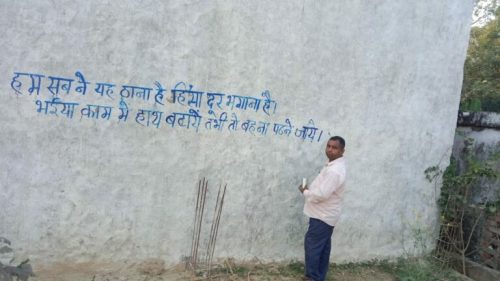 हम सब ने यह ठाना है हिंसा दूर भगाना है।
भईया काम मे हाथ बटाये तभी तो बहना पढने जाये।